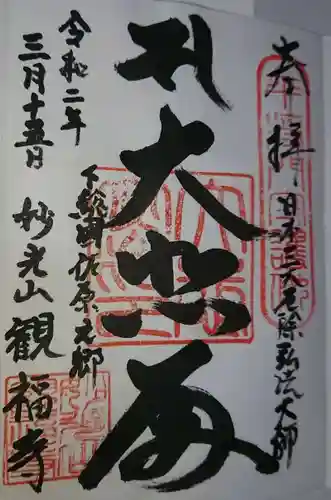 奉拝
日本三大厄除弘法大師
大悲
下総国佐原之郷
妙光山観福寺
令和二年
三月十五日